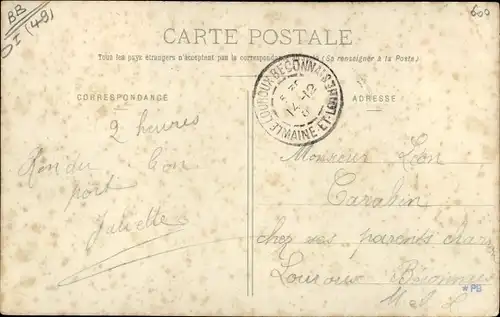 BB
DI (49)
600
CARTE POSTALE
Tous les pays étrangers n'acceptent pas la correspondance (Se renseigner à la Poste)
CORRESPONDANCE
ADRESSE
LE LOUROUX-BECONNAIS
MAINE-ET-LOIRE
14-12
2 heures
Rendu bon
port
Juliette
Monsieur Léon
Carabin
chez ses parents
Louroux Béconnais
M L
*PB